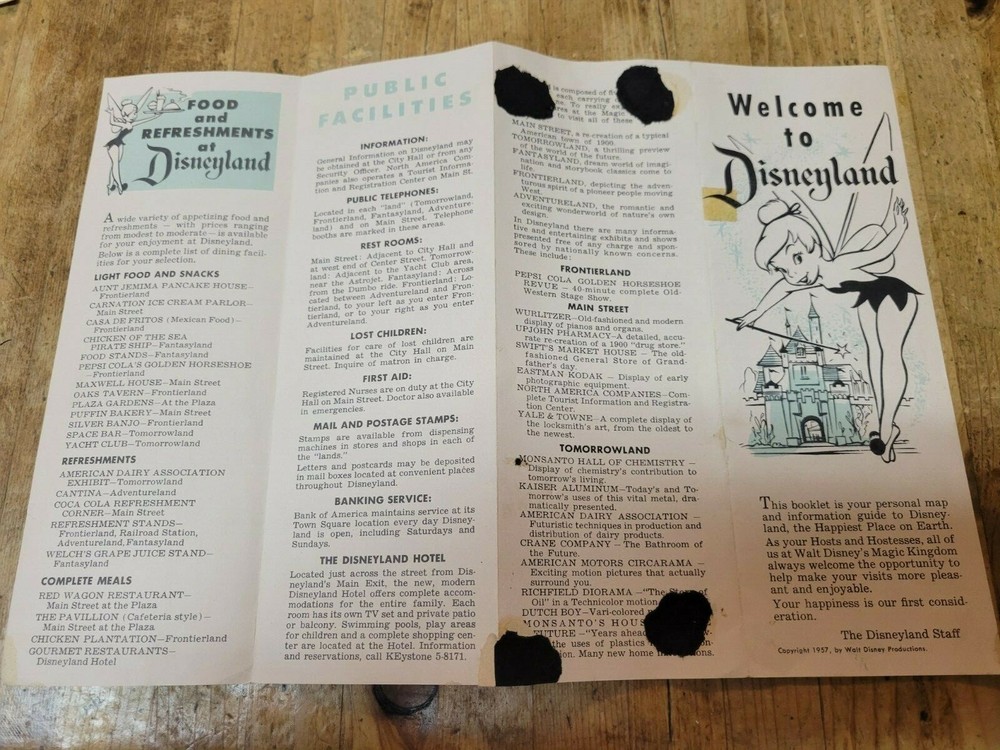 FOOD
and
REFRESHMENTS
at
Disneyland
A wide variety of appetizing food and
refreshments — with prices ranging
from modest to moderate — is available
for your enjoyment at Disneyland.
Below is a complete list of dining facil-
ities for your selection.
LIGHT FOOD AND SNACKS
AUNT JEMIMA PANCAKE HOUSE—
Frontierland
CARNATION ICE CREAM PARLOR—
Main Street
CASA DE FRITOS (Mexican Food)—
Frontierland
CHICKEN OF THE SEA
PIRATE SHIP—Fantasyland
FOOD STANDS—Fantasyland
PEPSI COLA'S GOLDEN HORSESHOE
—Frontierland
MAXWELL HOUSE—Main Street
OAKS TAVERN—Frontierland
PLAZA GARDENS—At the Plaza
PUFFIN BAKERY—Main Street
SILVER BANJO—Frontierland
SPACE BAR—Tomorrowland
YACHT CLUB—Tomorrowland
REFRESHMENTS
AMERICAN DAIRY ASSOCIATION
EXHIBIT—Tomorrowland
CANTINA—Adventureland
COCA COLA REFRESHMENT
CORNER—Main Street
REFRESHMENT STANDS—
Frontierland, Railroad Station,
Adventureland, Fantasyland
WELCH'S GRAPE JUICE STAND—
Fantasyland
COMPLETE MEALS
RED WAGON RESTAURANT—
Main Street at the Plaza
THE PAVILION (Cafeteria style)—
Main Street at the Plaza
CHICKEN PLANTATION—Frontierland
GOURMET RESTAURANTS—
Disneyland Hotel
PUBLIC
FACILITIES
INFORMATION:
General Information on Disneyland may
be obtained at the City Hall or from any
Security Officer. North America Com-
panies also operates a Tourist Informa-
tion and Registration Center on Main St.
PUBLIC TELEPHONES:
Located in each "land" (Tomorrowland,
Frontierland, Fantasyland, Adventure-
land) and on Main Street. Telephone
booths are marked in these areas.
REST ROOMS:
Main Street: Adjacent to City Hall and
at west end of Center Street. Tomorrow-
land: Adjacent to the Yacht Club area,
near the Astrojet. Fantasyland: Across
from the Dumbo ride. Frontierland: Lo-
cated between Adventureland and Fron-
tierland, to your left as you enter Fron-
tierland, or to your right as you enter
Adventureland.
LOST CHILDREN:
Facilities for care of lost children are
maintained at the City Hall on Main
Street. Inquire of matron in charge.
FIRST AID:
Registered Nurses are on duty at the City
Hall on Main Street. Doctor also available
in emergencies.
MAIL AND POSTAGE STAMPS:
Stamps are available from dispensing
machines in stores and shops in each of
the "lands."
Letters and postcards may be deposited
in mail boxes located at convenient places
throughout Disneyland.
BANKING SERVICE:
Bank of America maintains service at its
Town Square location every day Disney-
land is open, including Saturdays and
Sundays.
THE DISNEYLAND HOTEL
Located just across the street from Dis-
neyland's Main Exit, the new, modern
Disneyland Hotel offers complete accom-
modations for the entire family. Each
room has its own TV set and private patio
or balcony. Swimming pools, play areas
for children and a complete shopping cen-
ter are located at the Hotel. Information
and reservations, call KEystone 5-8171.
is composed of
each carrying
To really
area at the Magic
to visit all of these
MAIN STREET, a re-creation of a typical
American town of 1900.
TOMORROWLAND, a thrilling preview
of the world of the future.
FANTASYLAND, dream world of imagi-
nation and storybook classics come to
life.
FRONTIERLAND, depicting the adven-
turous spirit of a pioneer people moving
West.
ADVENTURELAND, the romantic and
exciting wonderworld of nature's own
design.
In Disneyland there are many informa-
tive and entertaining exhibits and shows
presented free of any charge and spon-
sored by nationally known concerns.
These include:
FRONTIERLAND
PEPSI COLA GOLDEN HORSESHOE
REVUE — 40-minute complete Old-
Western Stage Show.
MAIN STREET
WURLITZER—Old-fashioned and modern
display of pianos and organs.
UPJOHN PHARMACY—A detailed, accu-
rate re-creation of a 1900 "drug store."
SWIFT'S MARKET HOUSE — The old-
fashioned General Store of Grand-
father's day.
EASTMAN KODAK — Display of early
photographic equipment.
NORTH AMERICA COMPANIES—Com-
plete Tourist Information and Registra-
tion Center.
YALE & TOWNE—A complete display of
the locksmith's art, from the oldest to
the newest.
TOMORROWLAND
MONSANTO HALL OF CHEMISTRY —
Display of chemistry's contribution to
tomorrow's living.
KAISER ALUMINUM—Today's and To-
morrow's uses of this vital metal, dra-
matically presented.
AMERICAN DAIRY ASSOCIATION —
Futuristic techniques in production and
distribution of dairy products.
CRANE COMPANY — The Bathroom of
the Future.
AMERICAN MOTORS CIRCARAMA —
Exciting motion pictures that actually
surround you.
RICHFIELD DIORAMA —"The Story of
Oil" in a Technicolor motion
DUTCH BOY—Vari-colored
MONSANTO'S HOUS
FUTURE —"Years ahead
the uses of plastics
Many new home
Welcome
to
Disneyland
This booklet is your personal map
and information guide to Disney-
land, the Happiest Place on Earth.
As your Hosts and Hostesses, all of
us at Walt Disney's Magic Kingdom
always welcome the opportunity to
help make your visits more pleas-
ant and enjoyable.
Your happiness is our first consid-
eration.
The Disneyland Staff
Copyright 1957, by Walt Disney Productions.